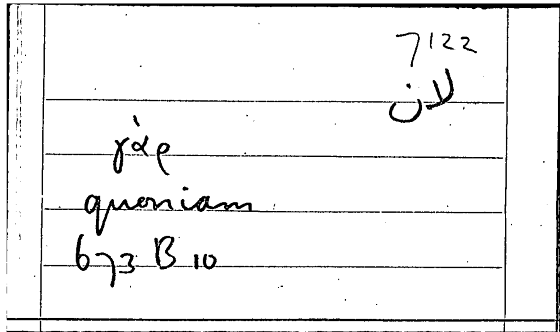 7122
لان
γὰρ
quoniam
673 B 10